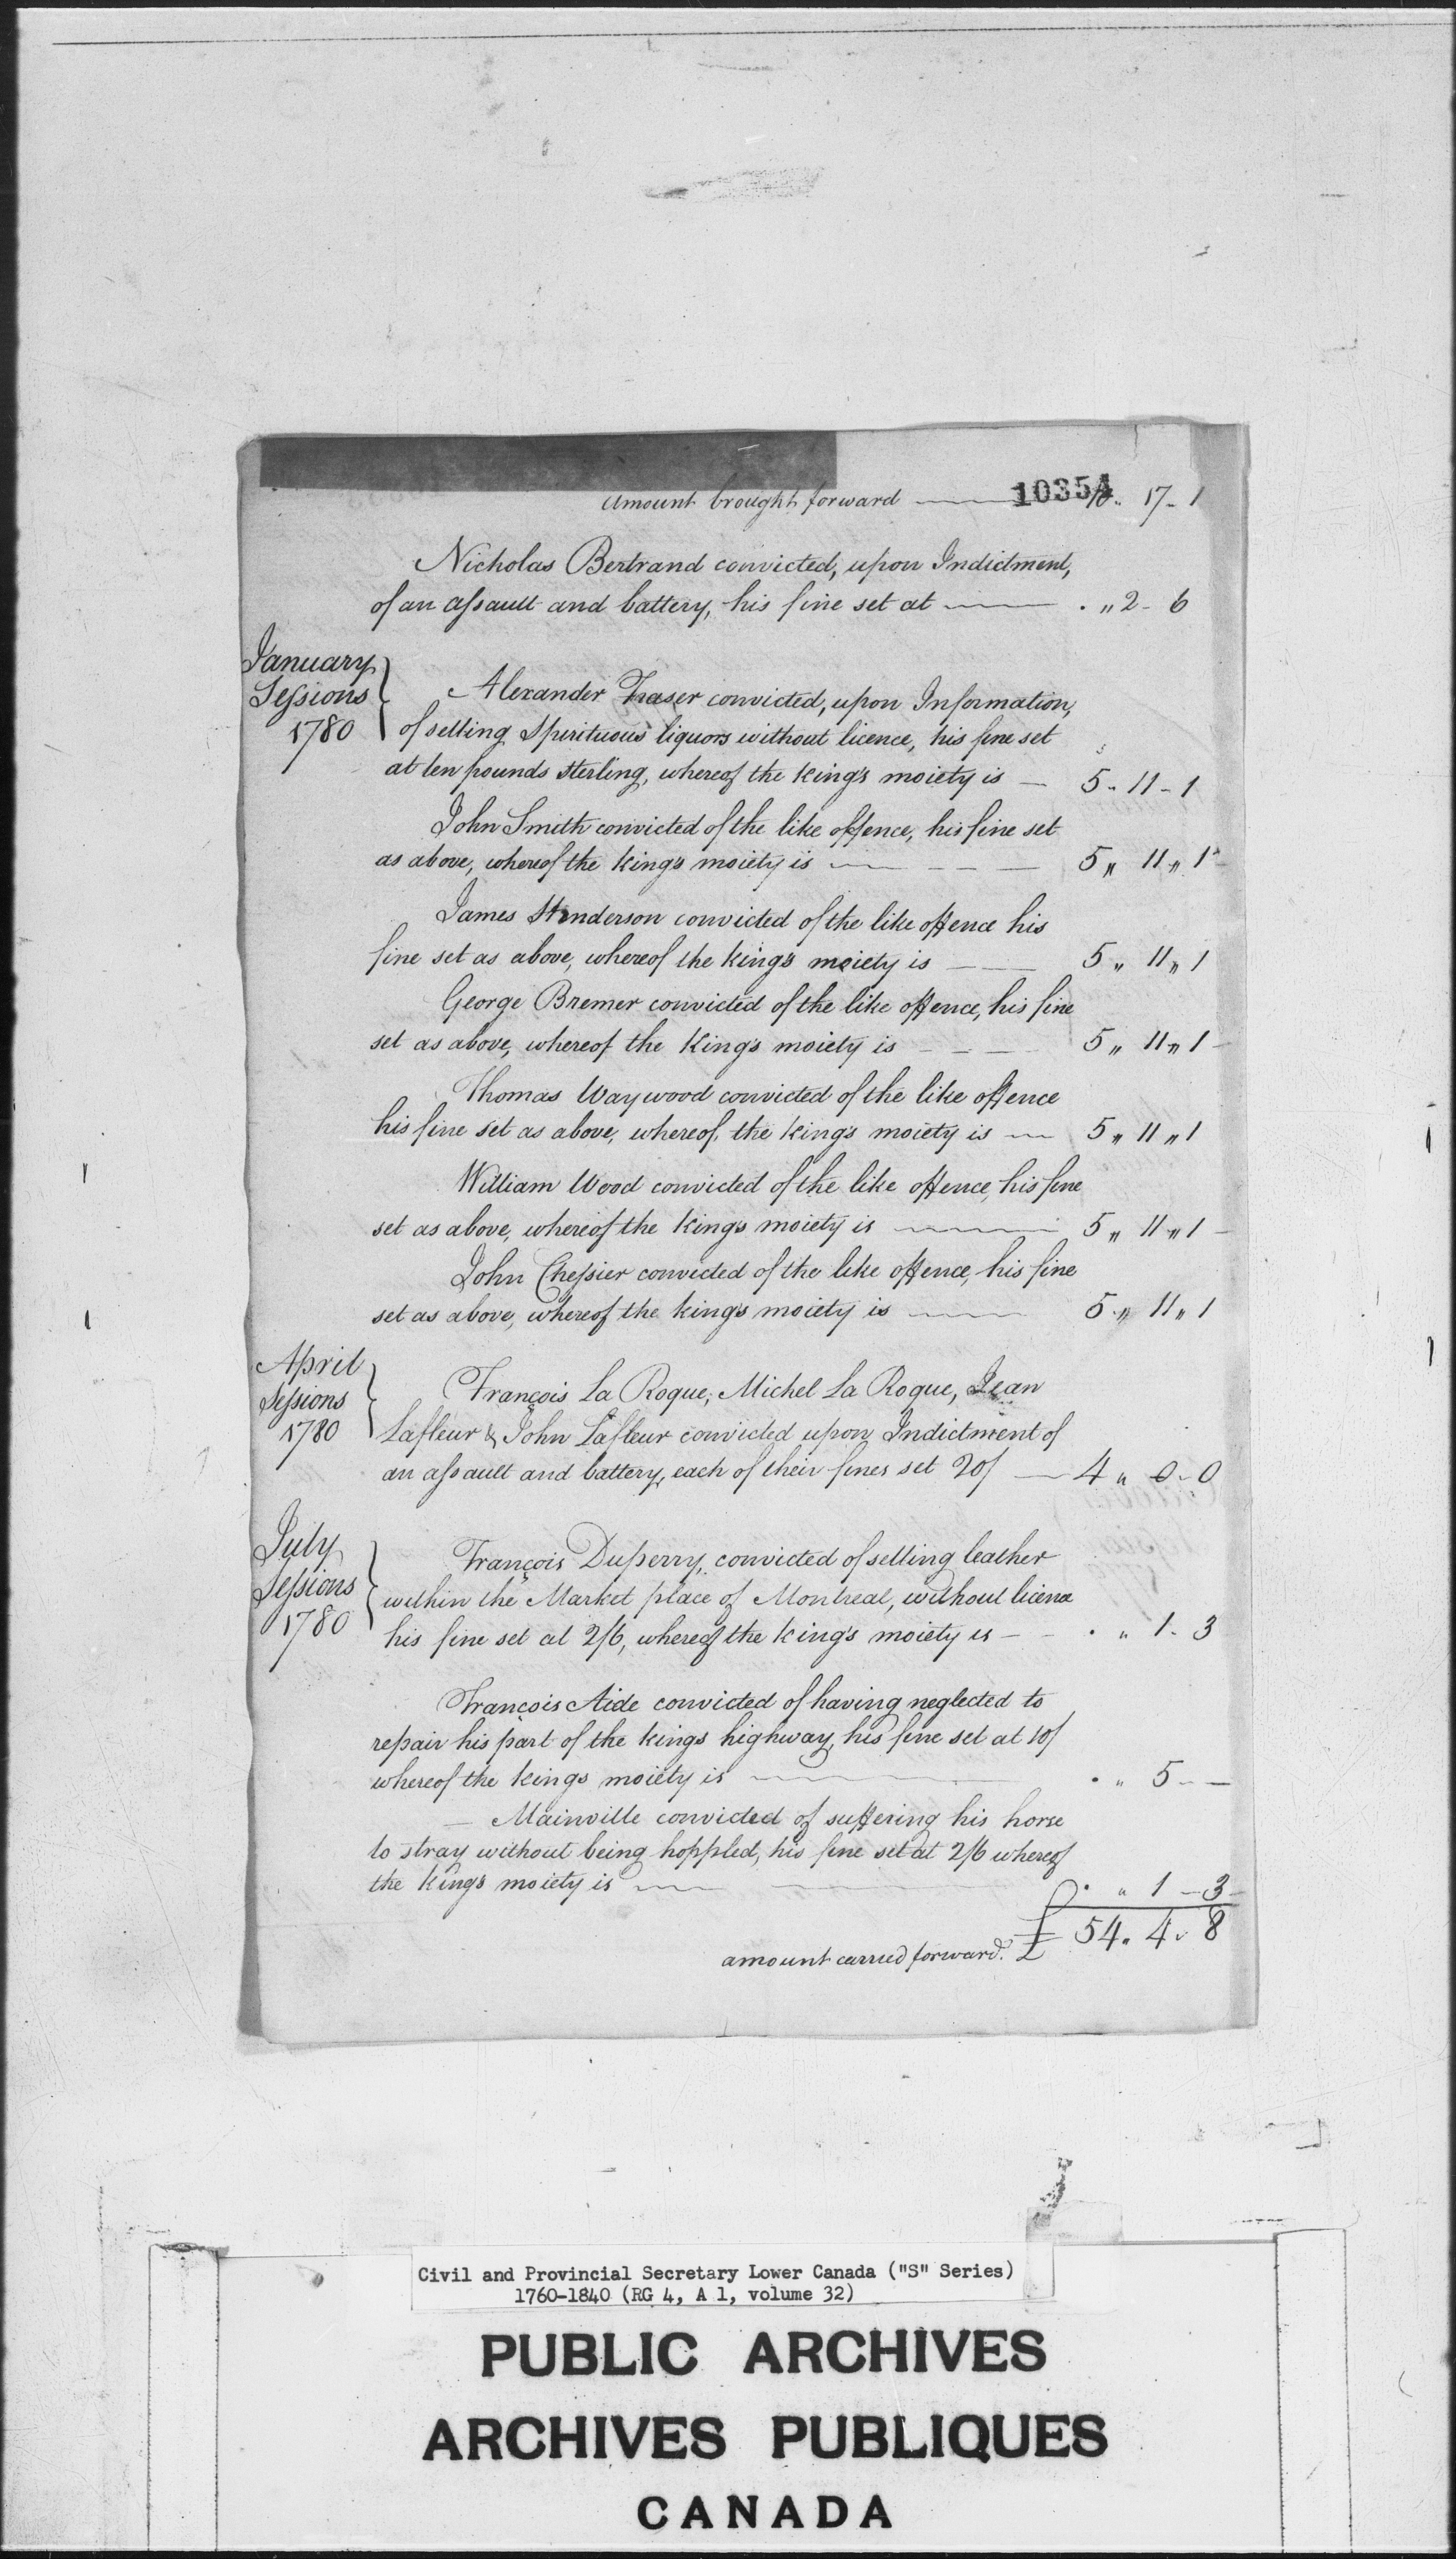 10354
Amount brought forward — 10 „ 17 - 1
Nicholas Bertrand convicted, upon Indictment,
of an assault and battery, his fine set at — . „ 2 - 6
January
Sessions
1780
Alexander Fraser convicted, upon Information,
of selling Spirituous liquors without licence, his fine set
at ten pounds sterling, whereof the king's moiety is — 5 - 11 - 1
John Smith convicted of the like offence, his fine set
as above, whereof the king's moiety is — — — 5 „ 11 „ 1
James Henderson convicted of the like offence his
fine set as above, whereof the king's moiety is — — 5 „ 11 „ 1
George Bremer convicted of the like offence, his fine
set as above, whereof the King's moiety is — — — 5 „ 11 „ 1
Thomas Waywood convicted of the like offence
his fine set as above, whereof the king's moiety is — 5 „ 11 „ 1
William Wood convicted of the like offence, his fine
set as above, whereof the king's moiety is — 5 „ 11 „ 1
John Chessier convicted of the like offence, his fine
set as above, whereof the king's moiety is — 5 „ 11 „ 1
April
Sessions
1780
François La Roque, Michel La Roque, Jean
Lafleur & John Lafleur convicted upon Indictment of
an assault and battery, each of their fines set 20/ — 4 „ 0 - 0
July
Sessions
1780
François Duperry, convicted of selling leather
within the Market place of Montreal, without licence
his fine set at 2/6, whereof the king's moiety is — . „ 1 - 3
François Aide convicted of having neglected to
repair his part of the kings highway, his fine set at 10/
whereof the kings moiety is — . „ 5 - —
— Mainville convicted of suffering his horse
to stray without being hoppled, his fine set at 2/6 whereof
the king's moiety is — — . „ 1 - 3
amount carried forward. £ 54 „ 4 „ 8
Civil and Provincial Secretary Lower Canada ("S" Series)
1760-1840 (RG 4, A 1, volume 32)
PUBLIC ARCHIVES
ARCHIVES PUBLIQUES
CANADA